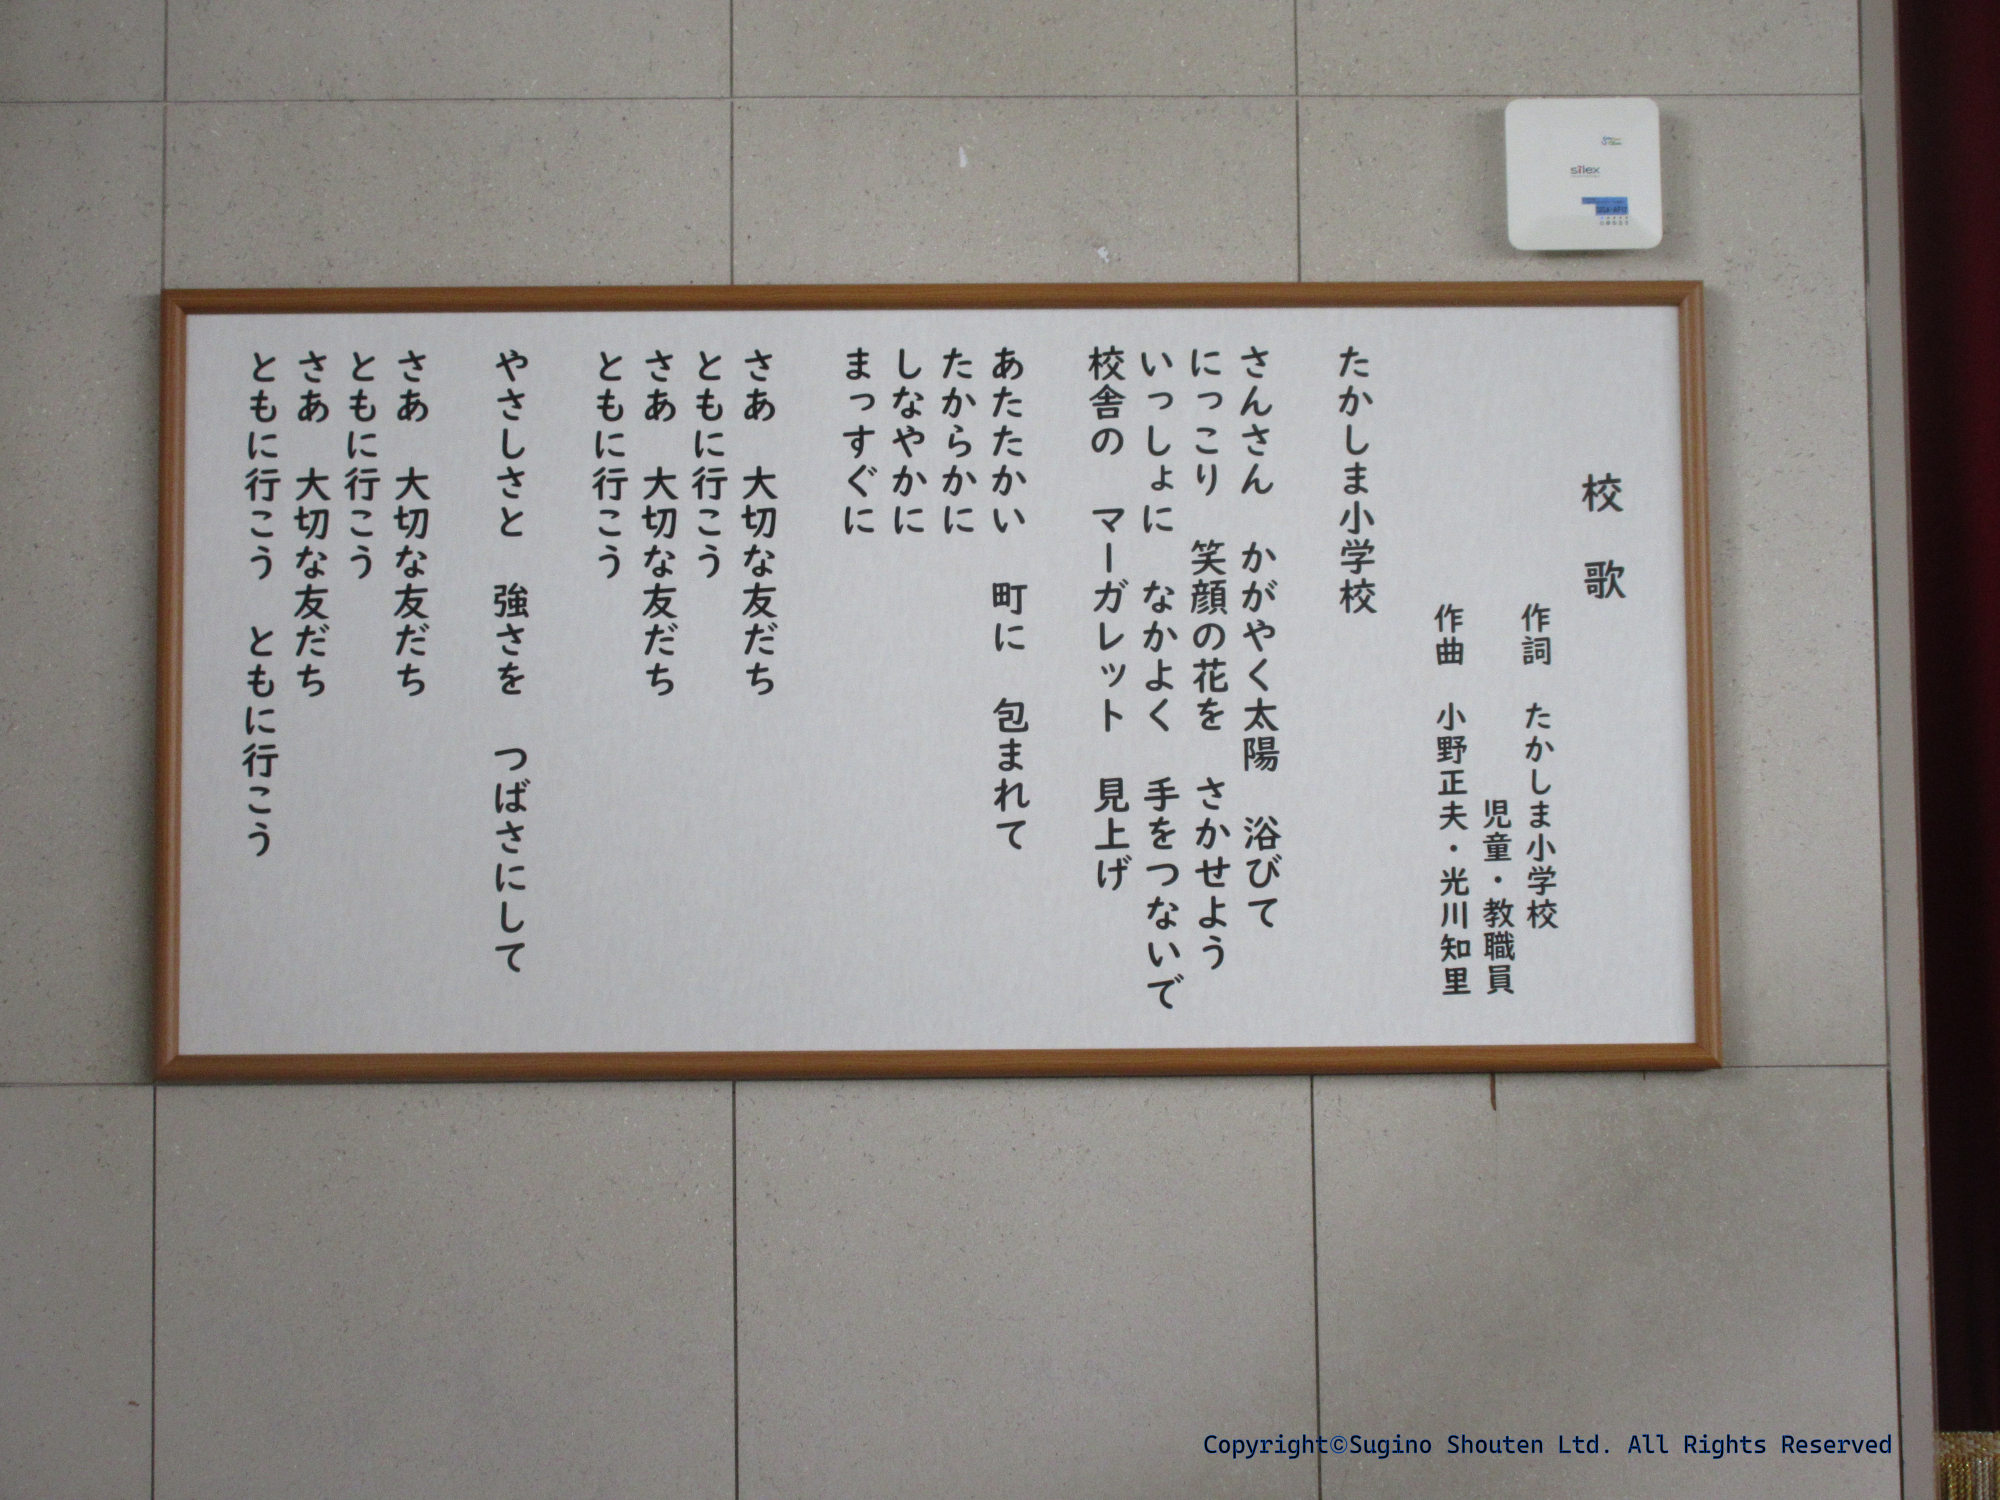 校 歌
作詞 たかしま小学校
児童・教職員
作曲 小野正夫・光川知里
たかしま小学校
さんさん かがやく太陽 浴びて
にっこり 笑顔の花を さかせよう
いっしょに なかよく 手をつないで
校舎の マーガレット 見上げ
あたたかい 町に 包まれて
たからかに
しなやかに
まっすぐに
さあ 大切な友だち
ともに行こう
さあ 大切な友だち
ともに行こう
やさしさと 強さを つばさにして
さあ 大切な友だち
ともに行こう
さあ 大切な友だち
ともに行こう ともに行こう
silex
Copyright©Sugino Shouten Ltd. All Rights Reserved